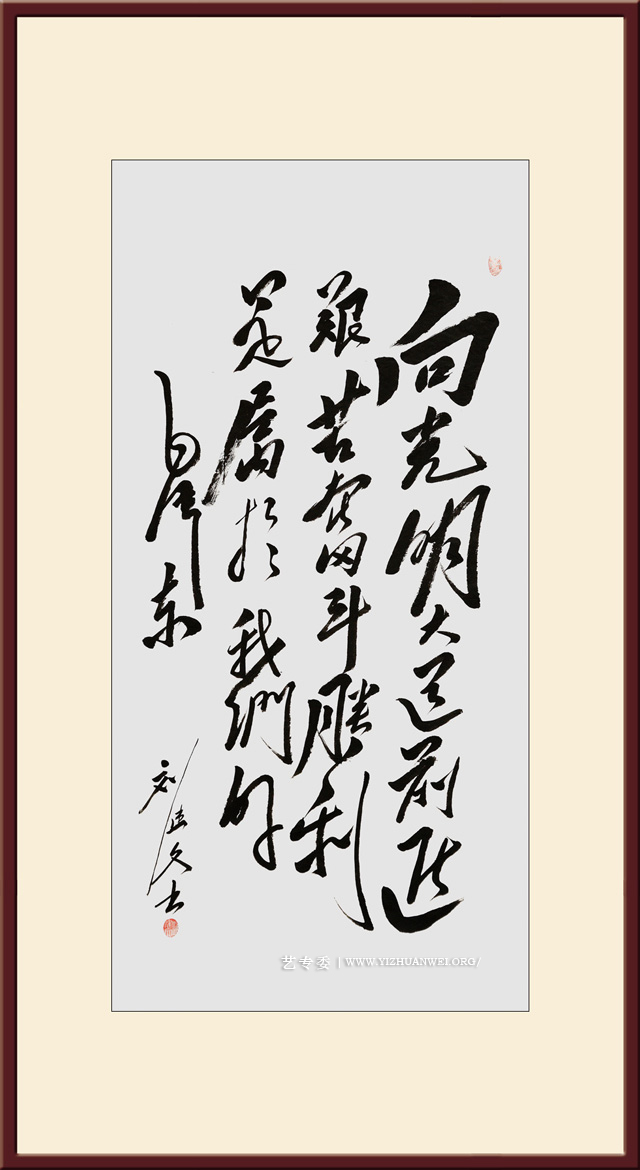 向光明大道前進
艱苦奮斗勝利
是屬於我們的
毛泽东
刘
书
艺专委 | WWW.YIZHUANWEI.ORG/